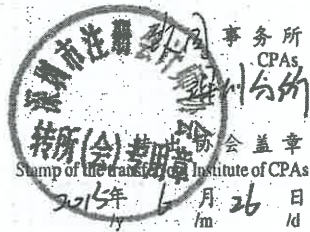 事务所
CPAs
深圳分所
深圳市注册会计师协会
转所(会)专用章
转出协会盖章
Stamp of the transfer-out Institute of CPAs
2015年 6月 26日
/y /m /d